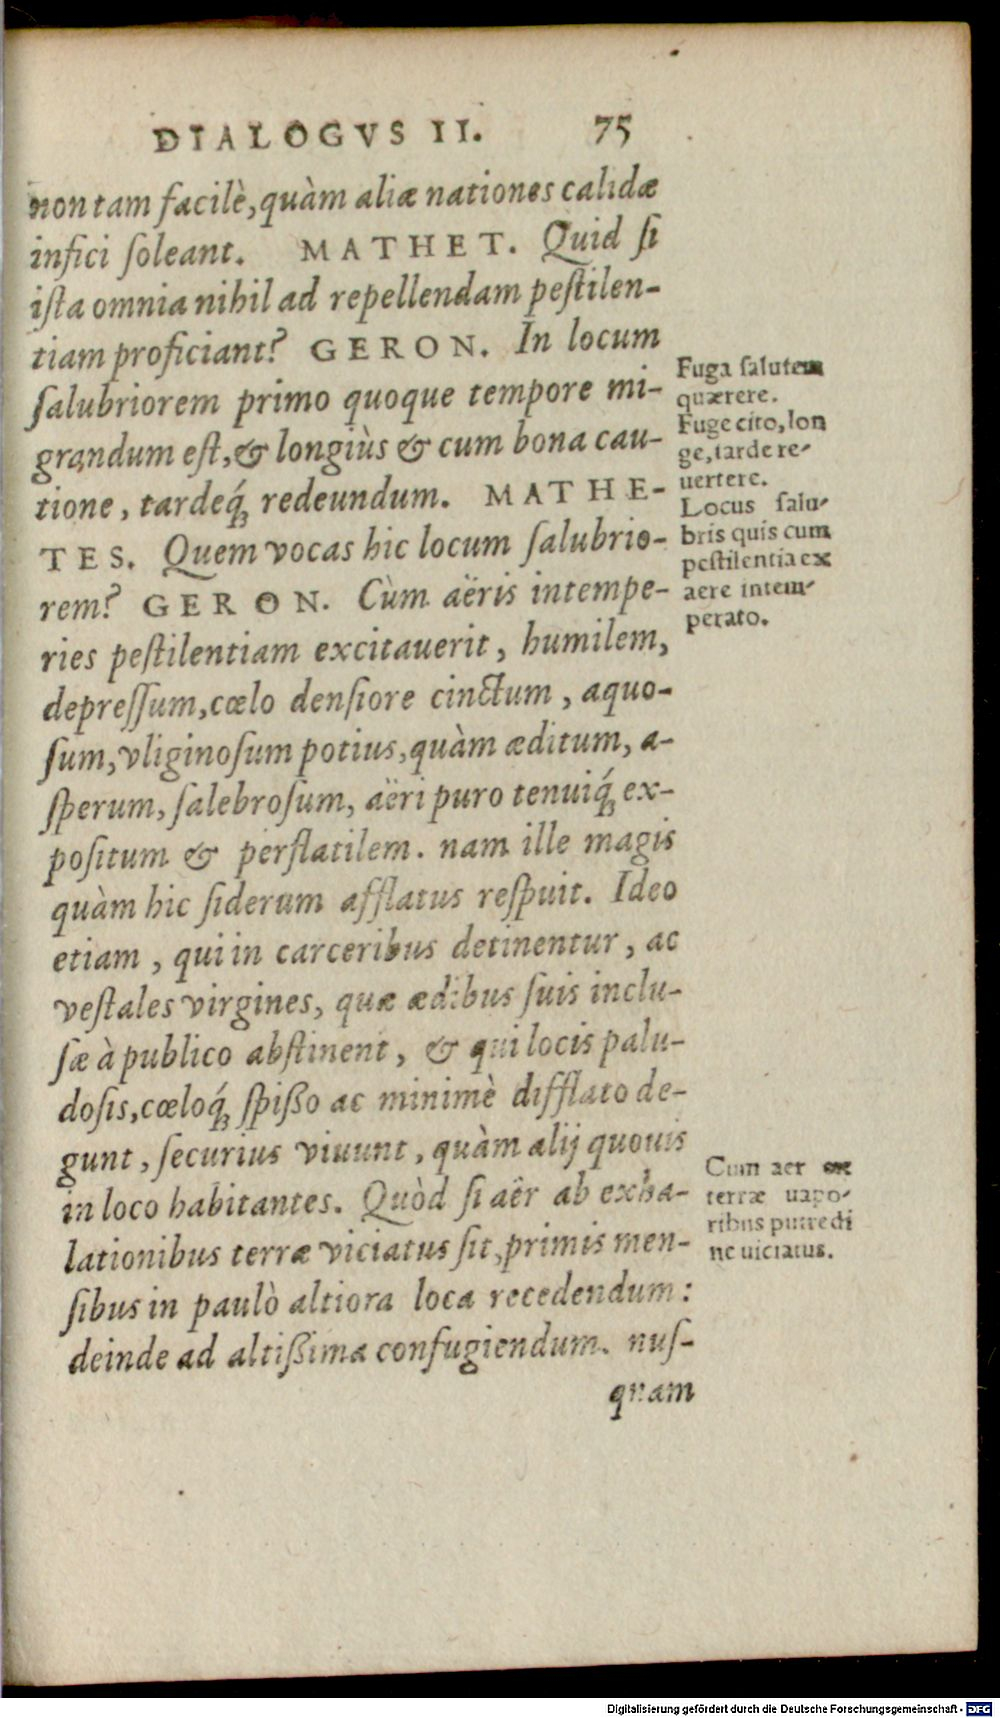 DIALOGVS II. 75
non tam facilè, quàm aliæ nationes calidæ
infici ſoleant. MATHET. Quid ſi
iſta omnia nihil ad repellendam peſtilen-
tiam proficiant? GERON. In locum
ſalubriorem primo quoque tempore mi-
grandum eſt, & longiùs & cum bona cau-
tione, tardeq́; redeundum. MATHE-
TES. Quem vocas hic locum ſalubrio-
rem? GERON. Cùm aëris intempe-
ries peſtilentiam excitauerit, humilem,
depreſſum, cœlo denſiore cinctum, aquo-
ſum, vliginoſum potius, quàm æditum, a-
ſperum, ſalebroſum, aëri puro tenuiq́; ex-
poſitum & perflatilem. nam ille magis
quàm hic ſiderum afflatus reſpuit. Ideo
etiam, qui in carceribus detinentur, ac
veſtales virgines, quæ ædibus ſuis inclu-
ſæ à publico abſtinent, & qui locis palu-
doſis, cœloq́; ſpißo ac minimè difflato de-
gunt, ſecurius viuunt, quàm alij quouis
in loco habitantes. Quòd ſi aër ab exha-
lationibus terræ viciatus ſit, primis men-
ſibus in paulò altiora loca recedendum:
deinde ad altißima confugiendum. nuſ-
quam
Fuga ſalutem
quærere.
Fuge cito, lon
ge, tarde re-
uertere.
Locus ſalu-
bris quis cum
peſtilentia ex
aere intem-
perato.
Cum aer ex
terræ uapo-
ribus putredi
ne uiciatus.
Digitalisierung gefördert durch die Deutsche Forschungsgemeinschaft - DFG